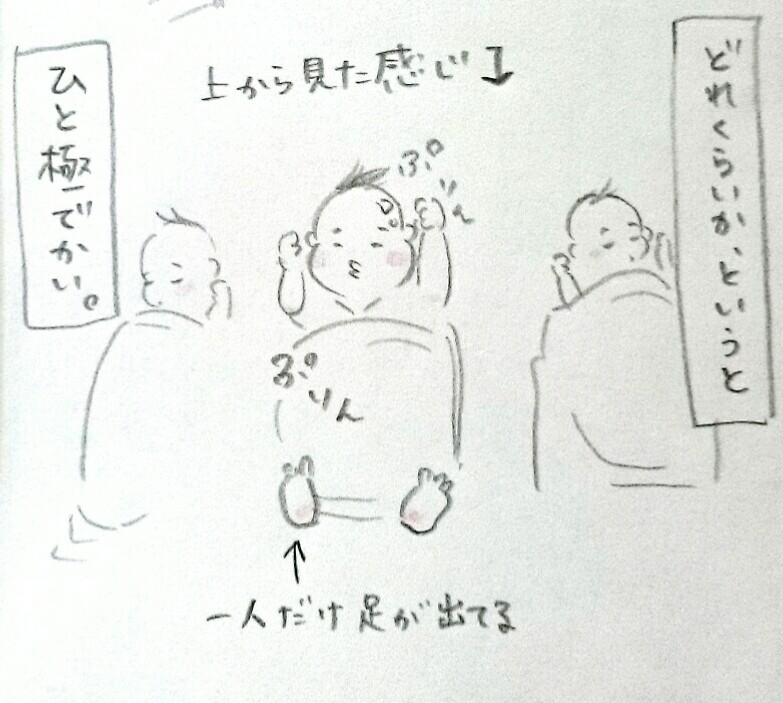 どれくらいか、というと
上から見た感じ↴
ひと極でかい。
ぷりん
ぷりん
↑
一人だけ足が出てる